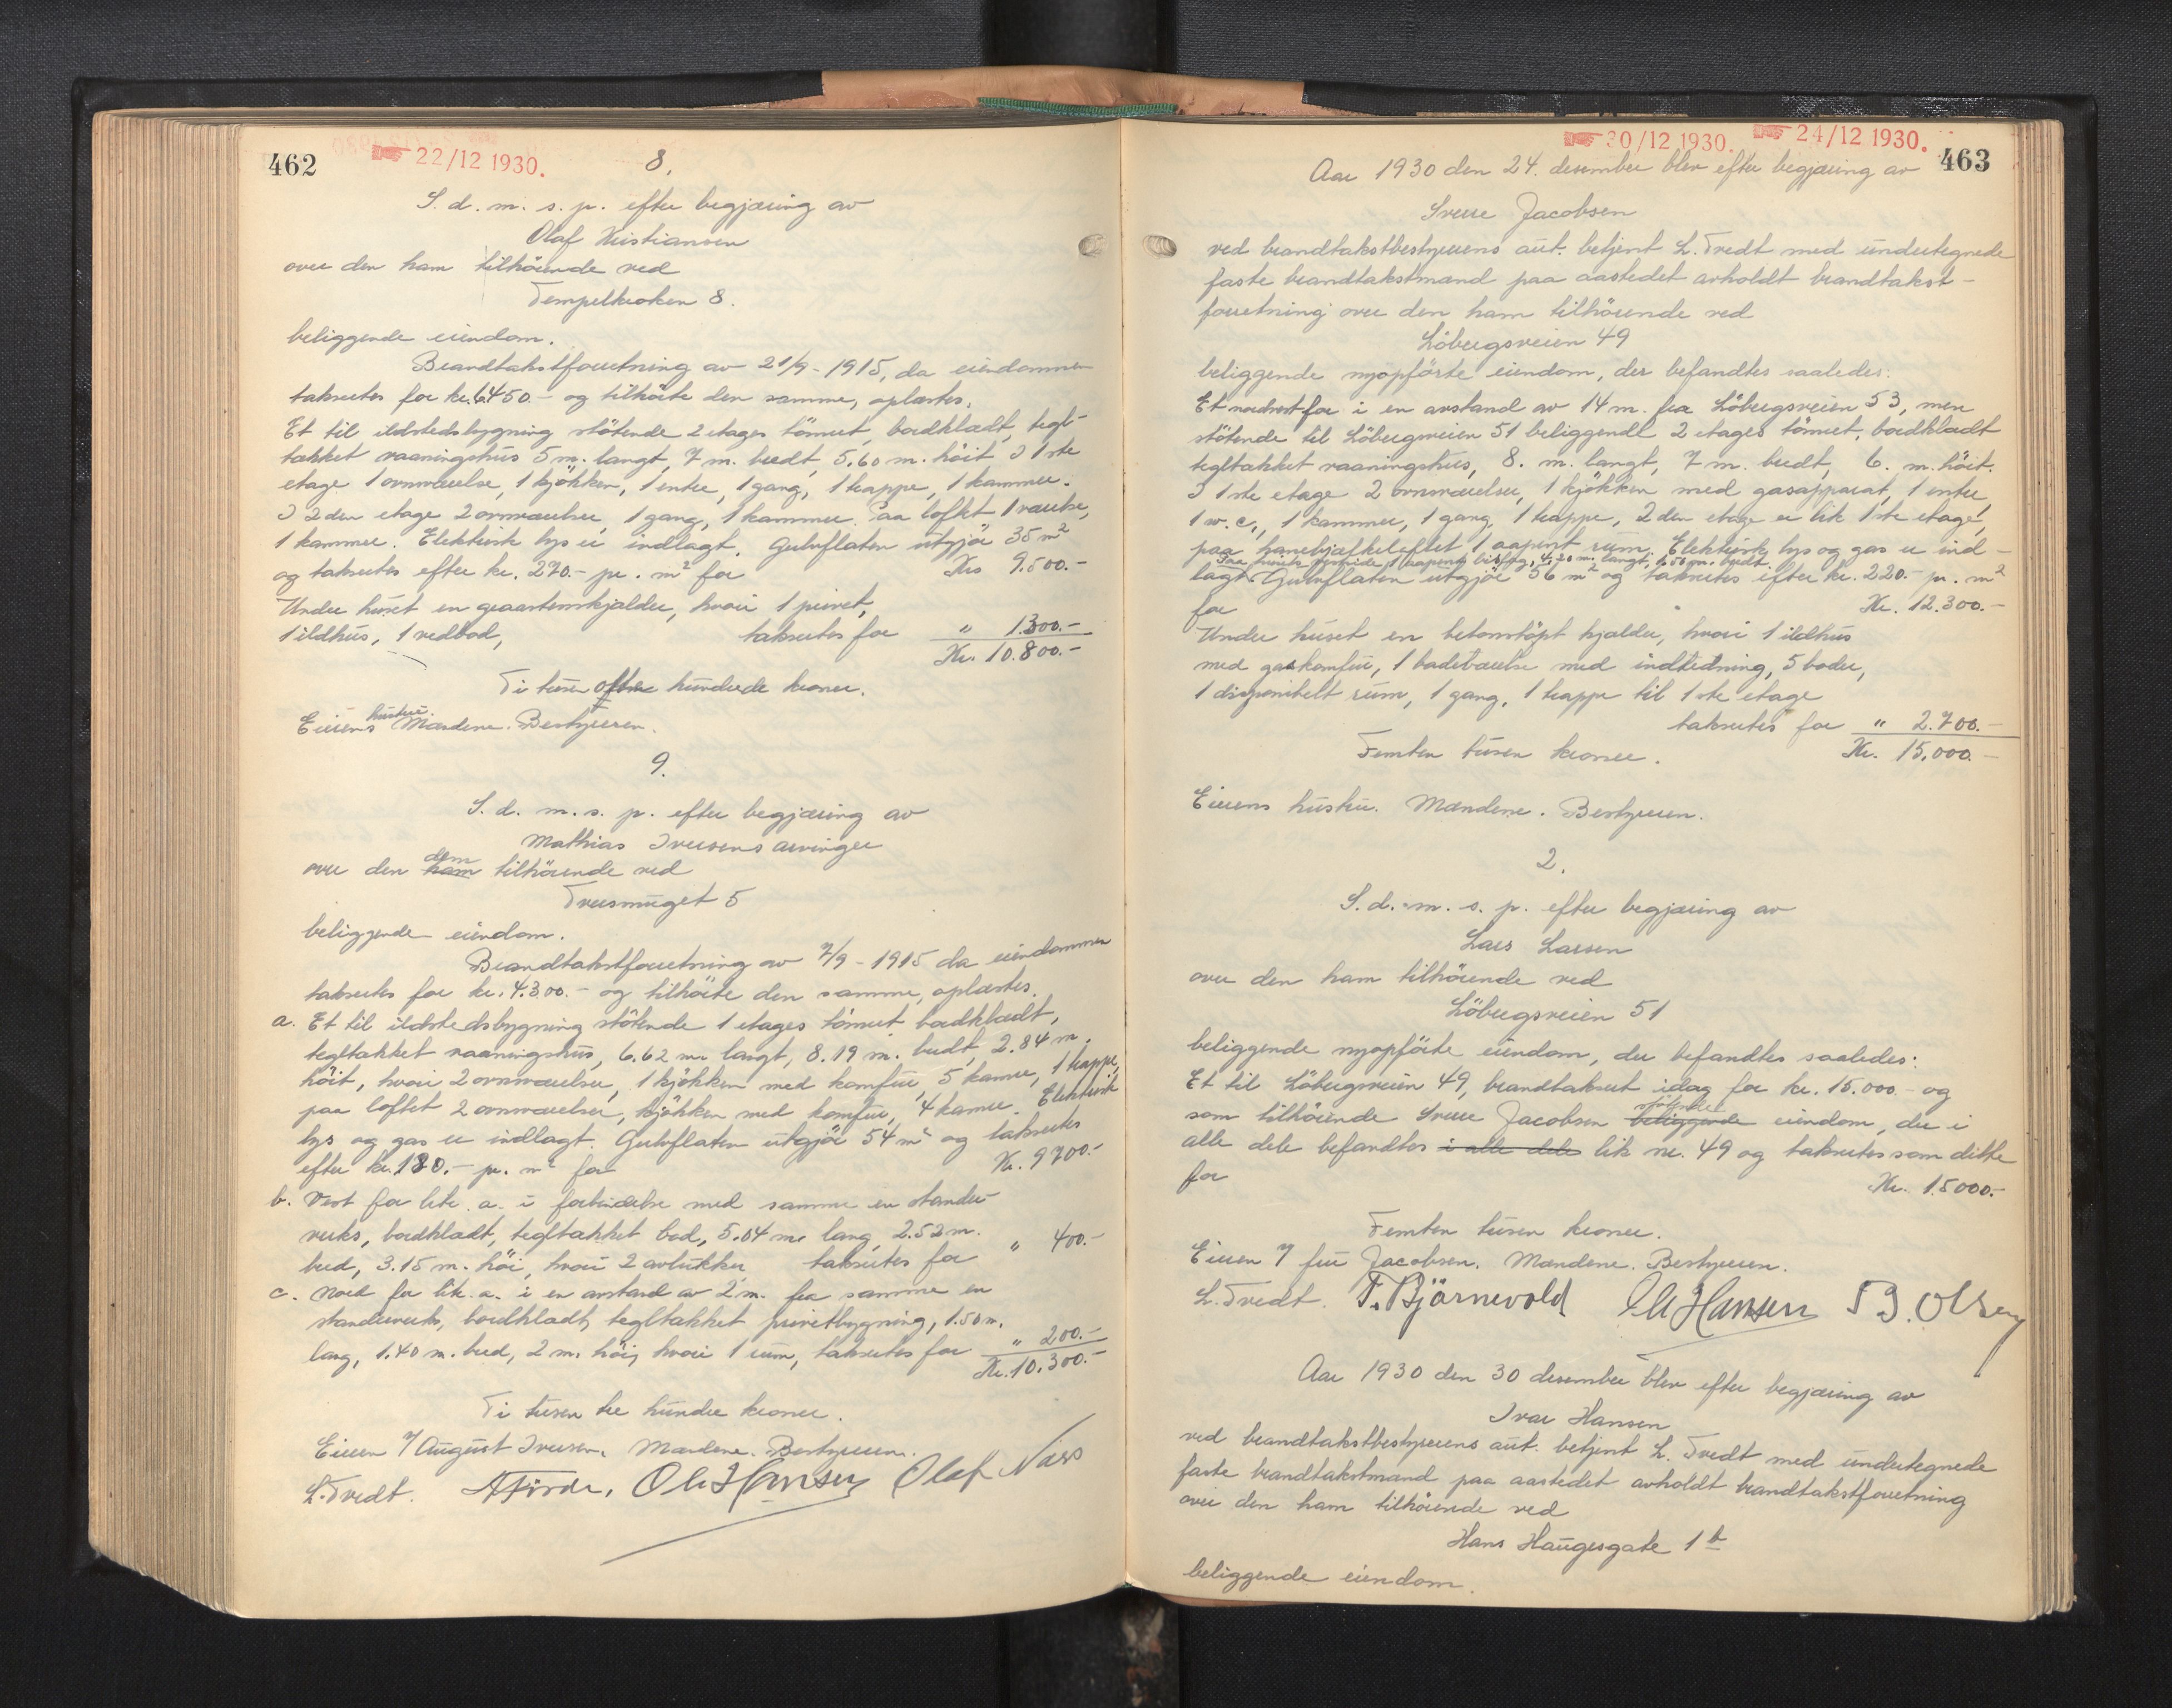 462
22/12 1930.
8.
S. d. m. s. p. efter begjæring av
Olaf Kristiansen
over den ham tilhörende ved
Tempelkroken 8.
beliggende eiendom.
Brandtakstforretning av 21/9 - 1915, da eiendommen
taksertes for kr. 6450.- og tilhörte den samme, oplæstes.
Et til ildstedsbygning stötende 2 etages tömret, bordklædt, tegl-
tækket vaaningshus 5 m. langt, 7 m. bredt, 5.60 m. höit I 1ste
etage 1 ovnsværelse, 1 kjökken, 1 entre, 1 gang, 1 trappe, 1 kammer.
I 2den etage 2 ovnsværelser, 1 gang, 1 kammer. Paa loftet 1 værelse,
1 kammer. Elektrisk lys er indlagt. Gulvflaten utgjör 35 m²
og taksertes efter kr. 270.- pr. m² for Krs 9.500.-
Under huset en graastenskjælder, hvori 1 privet,
1 ildhus, 1 vedbod, taksertes for " 1.300.-
Kr. 10.800.-
Ti tusen otte hundrede kroner.
Eierens hustru. Mændene. Bestyreren.
9.
S. d. m. s. p. efter begjæring av
Mathias Iversens arvinger
over den ham dem tilhörende ved
Tversmuget 5
beliggende eiendom.
Brandtakstforretning av 7/9 - 1915 da eiendommen
taksertes for kr. 4.300.- og tilhörte den samme, oplæstes.
a. Et til ildstedsbygning stötende 1 etages tömret, bordklædt,
tegltækket vaaningshus, 6.62 m. langt, 8.19 m. bredt, 2.84 m.
höit, hvori 2 ovnsværelser, 1 kjökken med komfur, 5 kamre, 1 trappe,
paa loftet 2 ovnsværelser, kjökken med komfur, 4 kamre. Elektrisk
lys og gas er indlagt. Gulvflaten utgjör 54 m² og taksertes
efter kr. 180.- pr. m² for Kr. 9700.-
b. Vest for litr. a. i forbindelse med samme en stander-
verks, bordklædt, tegltækket bod, 5.04 m. lang, 2.52 m.
bred, 3.15 m. höi, hvori 2 avlukker taksertes for " 400.-
c. Nord for litr. a. i en avstand av 2 m. fra samme en
standerverks, bordklædt, tegltækket privetbygning, 1.50 m.
lang, 1.40 m. bred, 2 m. höi, hvori 1 rum, taksertes for " 200.-
Kr. 10.300.-
Ti tusen tre hundre kroner.
Eieren v/ August Iversen. Mændene. Bestyreren.
L. Tvedt. Ole Hansen Olaf Næss
30/12 1930. 24/12 1930.
463
Aar 1930 den 24. desember blev efter begjæring av
Sverre Jacobsen
ved brandtakstbestyrerens aut. betjent L. Tvedt med undertegnede
faste brandtakstmænd paa aastedet avholdt brandtakst-
forretning over den ham tilhörende ved
Löbergsveien 49
beliggende nyopförte eiendom, der befandtes saaledes:
Et nordvest for i en avstand av 14 m. fra Löbergsveien 53, men
stötende til Löbergsveien 51 beliggende 2 etages tömret, bordklædt
tegltækket vaaningshus, 8. m. langt, 7 m. bredt, 6. m. höit.
I 1ste etage 2 ovnsværelser, 1 kjökken med gasapparat, 1 entre,
1 w.c., 1 kammer, 1 gang, 1 trappe, 2den etage er lik 1ste etage,
paa hanebjælkeloftet 1 aapent rum. Elektrisk lys og gas er ind-
lagt. Gulvflaten utgjör 56 m² og taksertes efter kr. 220.- pr. m²
for Kr. 12.300.-
Under huset en betonstöpt kjælder, hvori 1 ildhus
med gaskomfur, 1 badeværelse med indredning, 5 boder,
1 disponibelt rum, 1 gang, 1 trappe til 1ste etage
taksertes for " 2.700.-
Femten tusen kroner. Kr. 15.000.-
Eierens hustru. Mændene. Bestyreren.
2.
S. d. m. s. p. efter begjæring av
Lars Larsen
over den ham tilhörende ved
Löbergsveien 51
beliggende nyopförte eiendom, der befandtes saaledes:
Et til Löbergsveien 49, brandtaksert idag for kr. 15.000.- og
som tilhörende Sverre Jacobsen beliggende stötende eiendom, der i
alle dele befandtes i alle dele lik nr. 49 og taksertes som dette
for Kr. 15000.-
Femten tusen kroner.
Eieren v/ fru Jacobsen. Mændene. Bestyreren.
L. Tvedt. T. Björnevold Ole Hansen Olsen
Aar 1930 den 30 desember blev efter begjæring av
Ivar Hansen
ved brandtakstbestyrerens aut. betjent L. Tvedt med undertegnede
faste brandtakstmænd paa aastedet avholdt brandtakstforretning
over den ham tilhörende ved
Hans Haugesgate 1 b
beliggende eiendom.